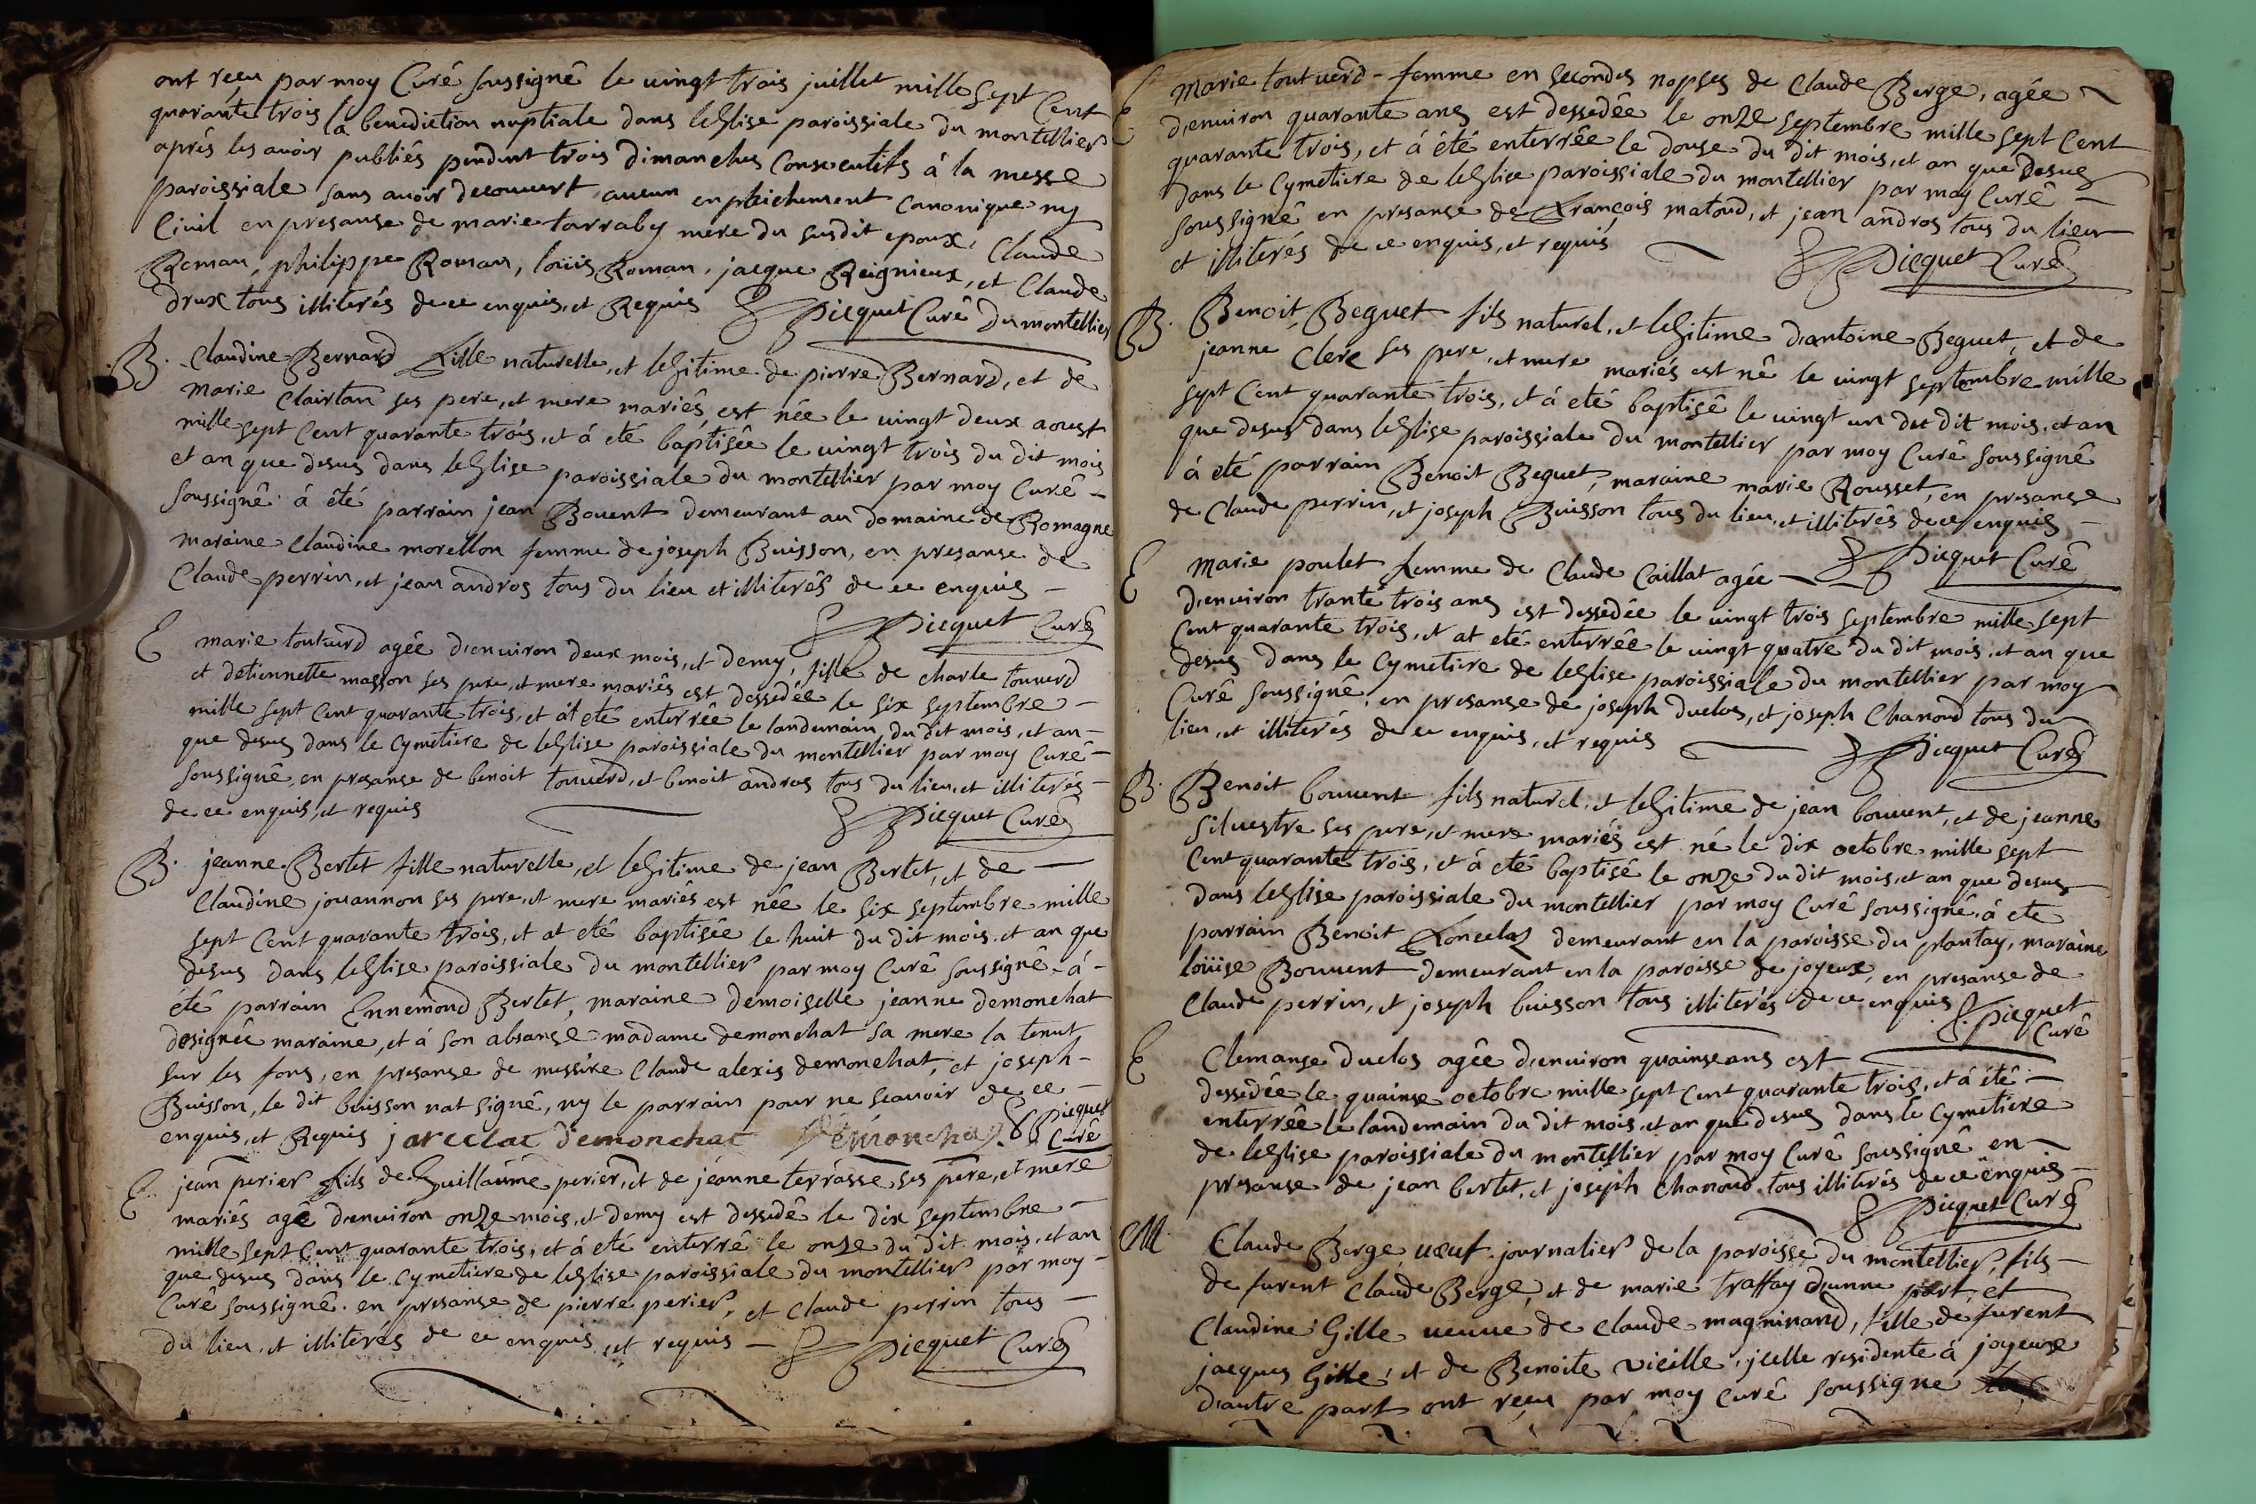 ont reçu par moy Curé sussigné le vingt trois juillet mille sept Cent
quarante trois la benediction nuptiale dans leglise paroissiale du montellier
aprés les avoir publiés pendent trois dimanches Consecutifs à la messe
paroissiale sans avoir decouvert aucun enpleichement Canonique ny
Civil en presanse de marie tarraby mere du susdit epoux, Claude
Roman, philippe Roman, loüis Roman, jacque Reignieux, et Claude
drux tous illiterés de ce enquis, et Requis Picquet Curé du montellier
B. Claudine Bernard fille naturelle, et legitime de pierre Bernard, et de
marie Clairtan ses pere, et mere mariés, est née le vingt deux aoust
mille sept Cent quarante trois, et à eté baptisée le vingt trois du dit mois
et an que desus dans leglise paroissiale du montellier par moy Curé
soussigné à été parrain jean Bouent demeurant au domaine de Romagne
maraine Claudine morellon femme de joseph Buisson, en presanse de
Claude perrin, et jean andros tous du lieu et illiterés de ce enquis
Picquet Curé
E marie toutverd agée d'environ deux mois, et demy, fille de charle touverd
et detiennette masson ses pere, et mere mariés est dessedée le six septembre
mille sept Cent quarante trois, et at eté enterrée le landemain du dit mois, et an
que desus dans le Cymetiere de leglise paroissiale du montellier par moy Curé
soussigné, en presanse de benoit touverd, et benoit andros tous du lieu, et illiterés
de ce enquis, et requis Picquet Curé
B. jeanne Bertet fille naturelle, et legitime de jean Bertet, et de
Claudine jouannon ses pere, et mere mariés est née le six septembre mille
sept Cent quarante trois, et at eté baptisée le huit du dit mois, et an que
desus dans leglise paroissiale du montellier par moy Curé soussigné à
été parrain Ennemond Bertet, maraine demoiselle jeanne demonchat
designée maraine, et à son absanse madame demonchat sa mere la tenut
sur les fons, en presanse de messire Claude alexis demonchat, et joseph
Buisson, le dit buisson nat signé, ny le parrain pour ne scavoir de ce
enquis, et Requis jareclac demonchac Demonchaz Picquet
Curé
E jean perier fils de Guillaume perier, et de jeanne terrasse ses pere, et mere
mariés agé d'environ onze mois, et demy est dessedé le dix septembre
mille sept Cent quarante trois, et à eté enterré le onze du dit mois, et an
que desus dans le Cymetiere de leglise paroissiale du montellier par moy
Curé soussigné en presanse de pierre perier, et Claude perrin tous
du lieu, et illiterés de ce enquis, et requis Picquet Curé
E marie toutverd femme en secondes nopses de Claude Berge, agée
d'environ quarante ans est dessedée le onze septembre mille sept Cent
quarante trois, et à été enterrée le douse du dit mois, et an que desus
dans le Cymetiere de leglise paroissiale du montellier par moy Curé
soussigné en presanse de François matoud, et jean andros tous du lieu
et illiterés de ce enquis, et requis Picquet Curé
B. Benoit Beguet fils naturel, et legitime d'antoine Beguet, et de
jeanne Clerc ses pere, et mere mariés est né le vingt septembre mille
sept Cent quarante trois, et à eté baptisé le vingt un du dit mois, et an
que desus dans leglise paroissiale du montellier par moy Curé soussigné
à eté parrain Benoit Beguet, maraine marie Rousset, en presanse
de Claude perrin, et joseph Buisson tous du lieu, et illiterés de ce enquis
Picquet Curé
E marie poulet femme de Claude Caillat agée
d'environ trante trois ans est dessedée le vingt trois septembre mille sept
Cent quarante trois, et at eté enterrée le vingt quatre du dit mois, et an que
desus dans le Cymetiere de leglise paroissiale du montellier par moy
Curé soussigné, en presanse de joseph duclos, et joseph Chanoud tous du
lieu, et illiterés de ce enquis, et requis Picquet Curé
B. Benoit bouvent fils naturel, et legitime de jean bouvent, et de jeanne
silvestre ses pere, et mere mariés est né le dix octobre mille sept
Cent quarante trois, et à eté baptisé le onze du dit mois, et an que desus
dans leglise paroissiale du montellier par moy Curé soussigné, à eté
parrain Benoit demeurant en la paroisse du plantay, maraine
loüise Bouvent demeurant en la paroisse de joyeux, en presanse de
Claude perrin, et joseph buisson tous illiterés de ce enquis Picquet
Curé
E Clemanse duclos agée d'environ quainse ans est
dessedée le quainse octobre mille sept Cent quarante trois, et à été
enterrée le landemain du dit mois, et an que desus dans le Cymetiere
de leglise paroissiale du montellier par moy Curé soussigné en
presanse de jean bertet, et joseph Chanoud tous illiterés de ce enquis
Picquet Curé
M. Claude Berge vœuf journalier de la paroisse du montellier, fils
de furent Claude Berge, et de marie traffay d'unne part et
Claudine Gille veuve de Claude magninand, fille de furent
jacques Gille, et de Benoite vieille, icelle residente à joyeux
d'autre part ont reçu par moy Curé soussigné